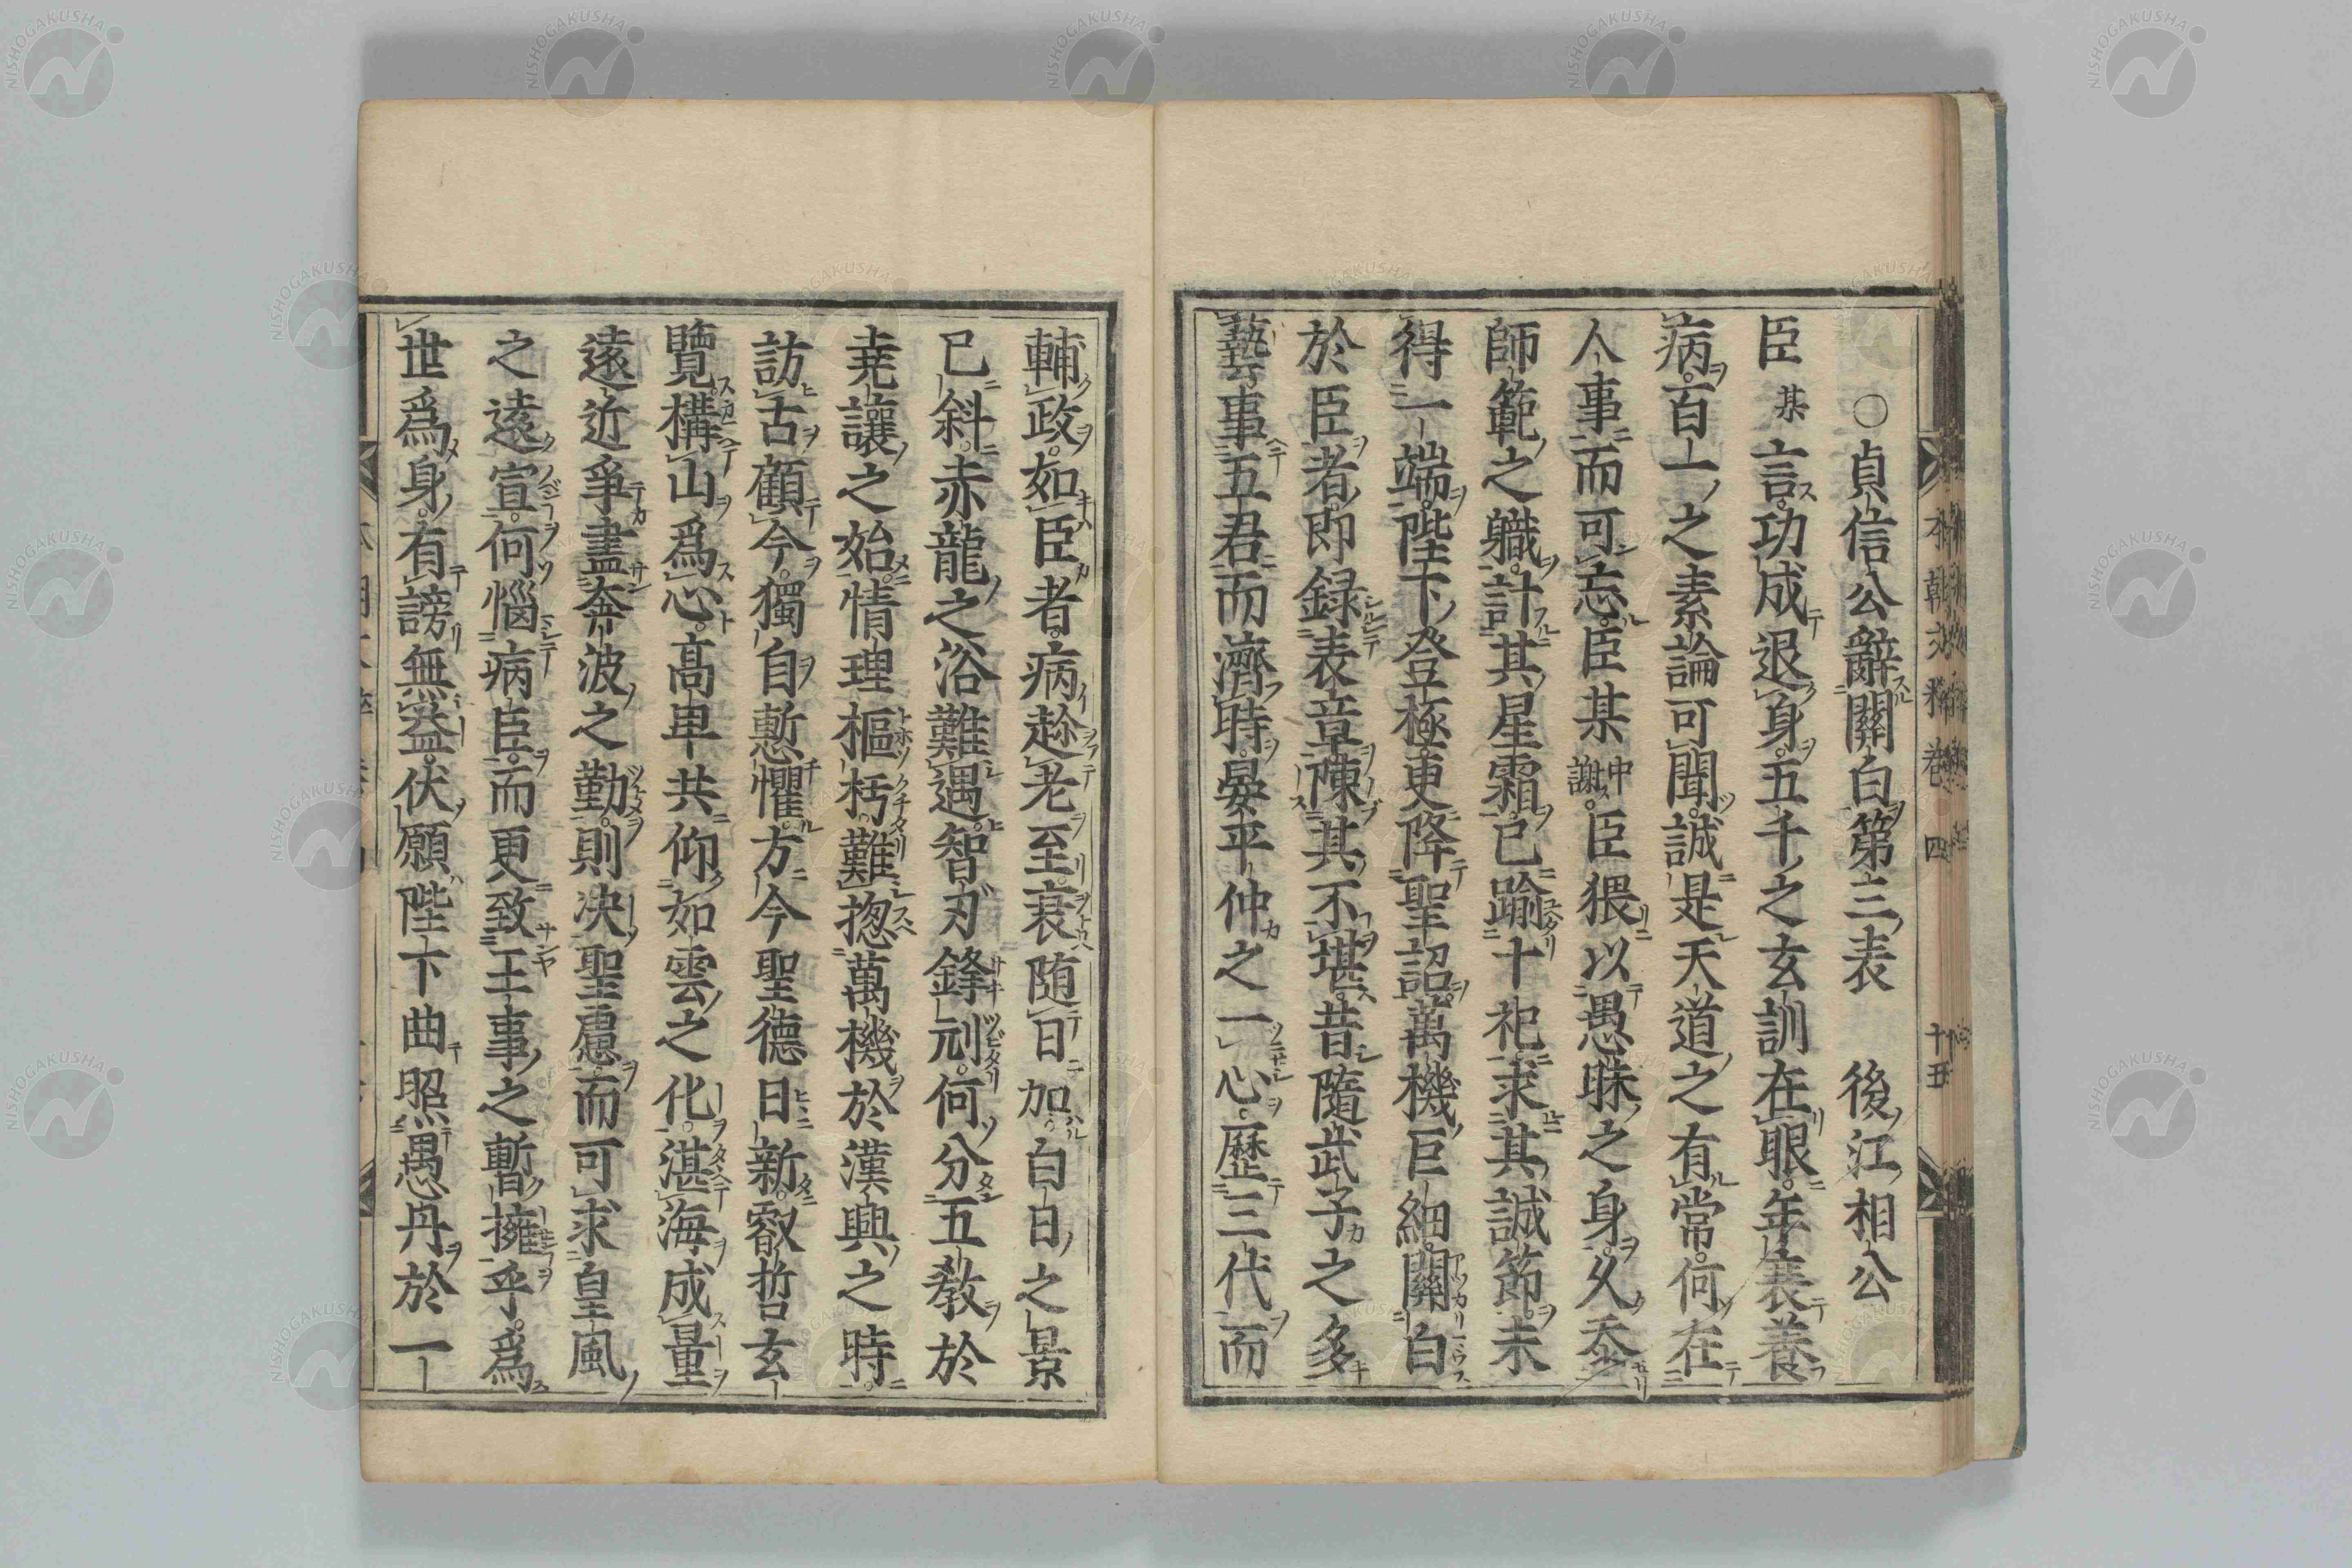 ○貞信公辭關白第三表　後江相公
臣某言。功成退身。五千之玄訓在眼。年衰養
病。百一之素論可聞。誠是天道之有常。何在
人事而可忘。臣某中謝。臣猥以愚昧之身。久忝
師範之職。計其星霜。已踰十祀。求其誠節。未
得一端。陛下登極。更降聖詔。萬機巨細。關白
於臣者。即録表章。陳其不堪。昔隨武子之多
藝。事五君而濟時。晏平仲之一心。歷三代而
輔政。如臣者。病趁老至。衰随日加。白日之景
已斜。赤龍之浴難遇。智刃鋒刓。何分五教於
堯讓之始。情理樞朽。難揔萬機於漢興之時。
訪古顧今。獨自慙懼。方今聖德日新。叡哲玄
覽。構山爲心。高卑共仰如雲之化。湛海成量。
遠近爭盡奔波之勤。則决聖慮。而可求皇風
之遠宣。何惱病臣。而更致王事之暫擁乎。爲
世爲身。有謗無益。伏願陛下曲照愚丹於一
本朝文粹卷四　十五